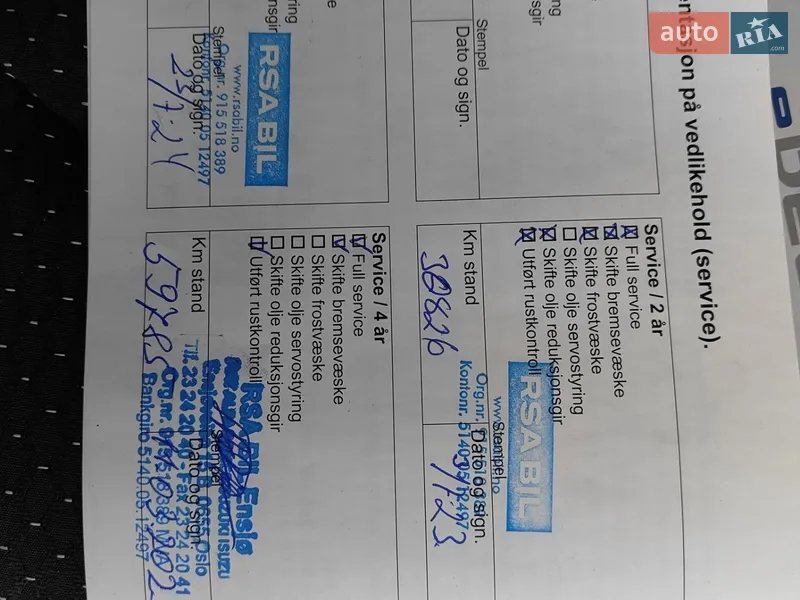 auto RIA.com
entasjon på vedlikehold (service).
ng
onsgir
Stempel
Dato og sign.
Service / 2 år
Full service
Skifte bremsevæske
Skifte frostvæske
Skifte olje servostyring
Skifte olje reduksjonsgir
Utført rustkontroll
Km stand
30826
RSA BIL
Stempel
Kontonr. 5140 05 12497
Dato og sign.
e
ring
onsgir
RSA BIL
www.rsabil.no
Org.nr. 915 518 389
Kontonr. 5140 05 12497
Stempel
Dato og sign.
Service / 4 år
Full service
Skifte bremsevæske
Skifte frostvæske
Skifte olje servostyring
Skifte olje reduksjonsgir
Utført rustkontroll
Km stand
59785
RSA BIL Ensjø
SUZUKI ISUZU
0655 Oslo
Tlf. 23 24 20 40 - Fax 23 24 20 41
Stempel
Dato og sign.
Bankgiro 5140.05.12497